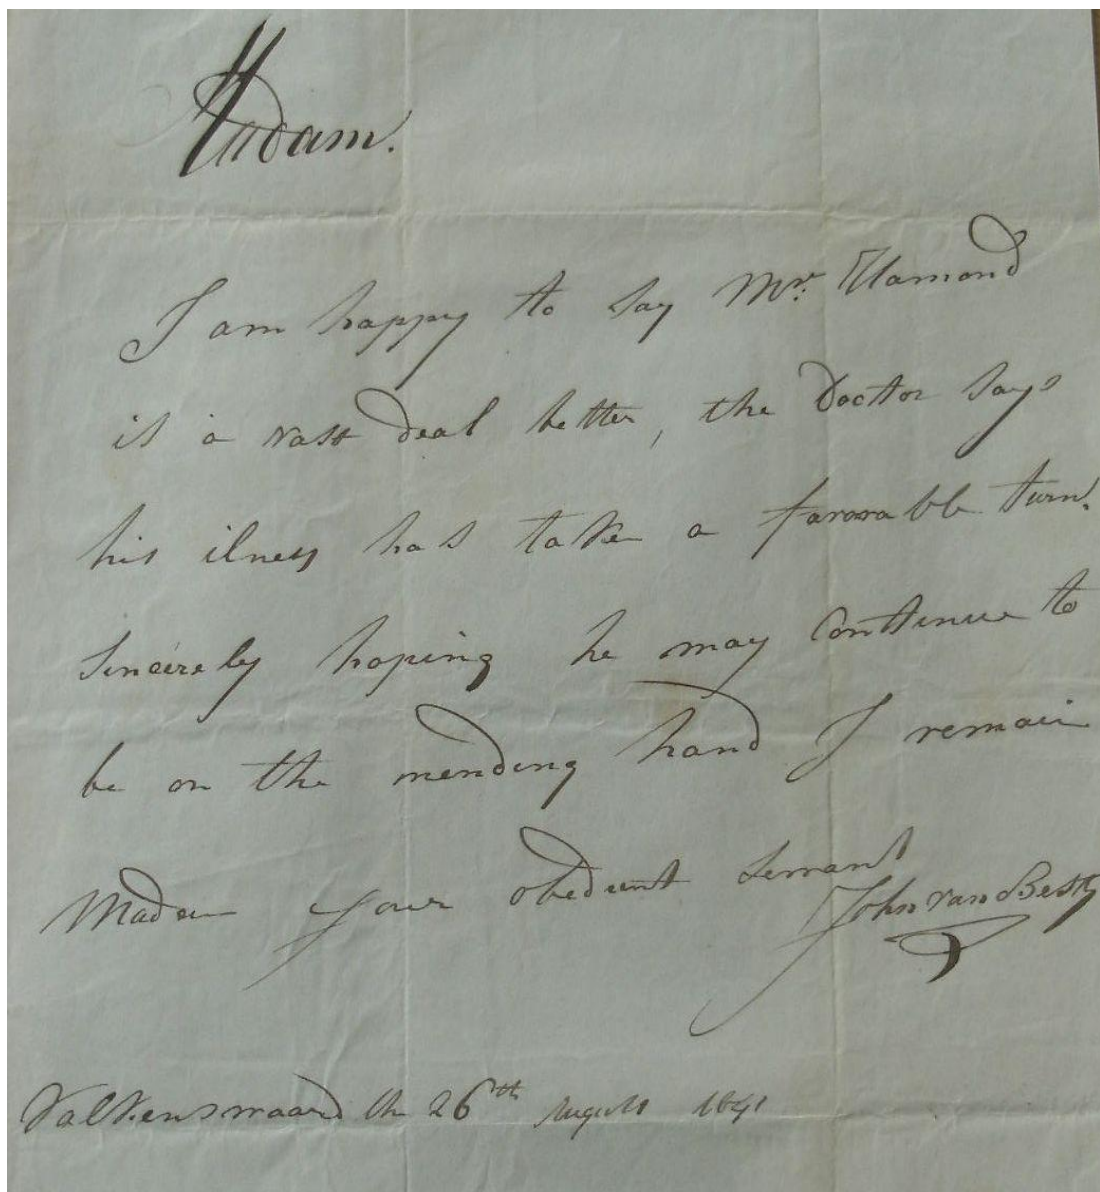 Madam.
I am happy to say Mr. Hamond
is a vast deal better, the Doctor says
his ilness has taken a favorable turn.
Sincerely hoping he may continue to
be on the mending hand I remain
Madam your obedient Servant
John van Best
Valkenswaard the 26th August 1841